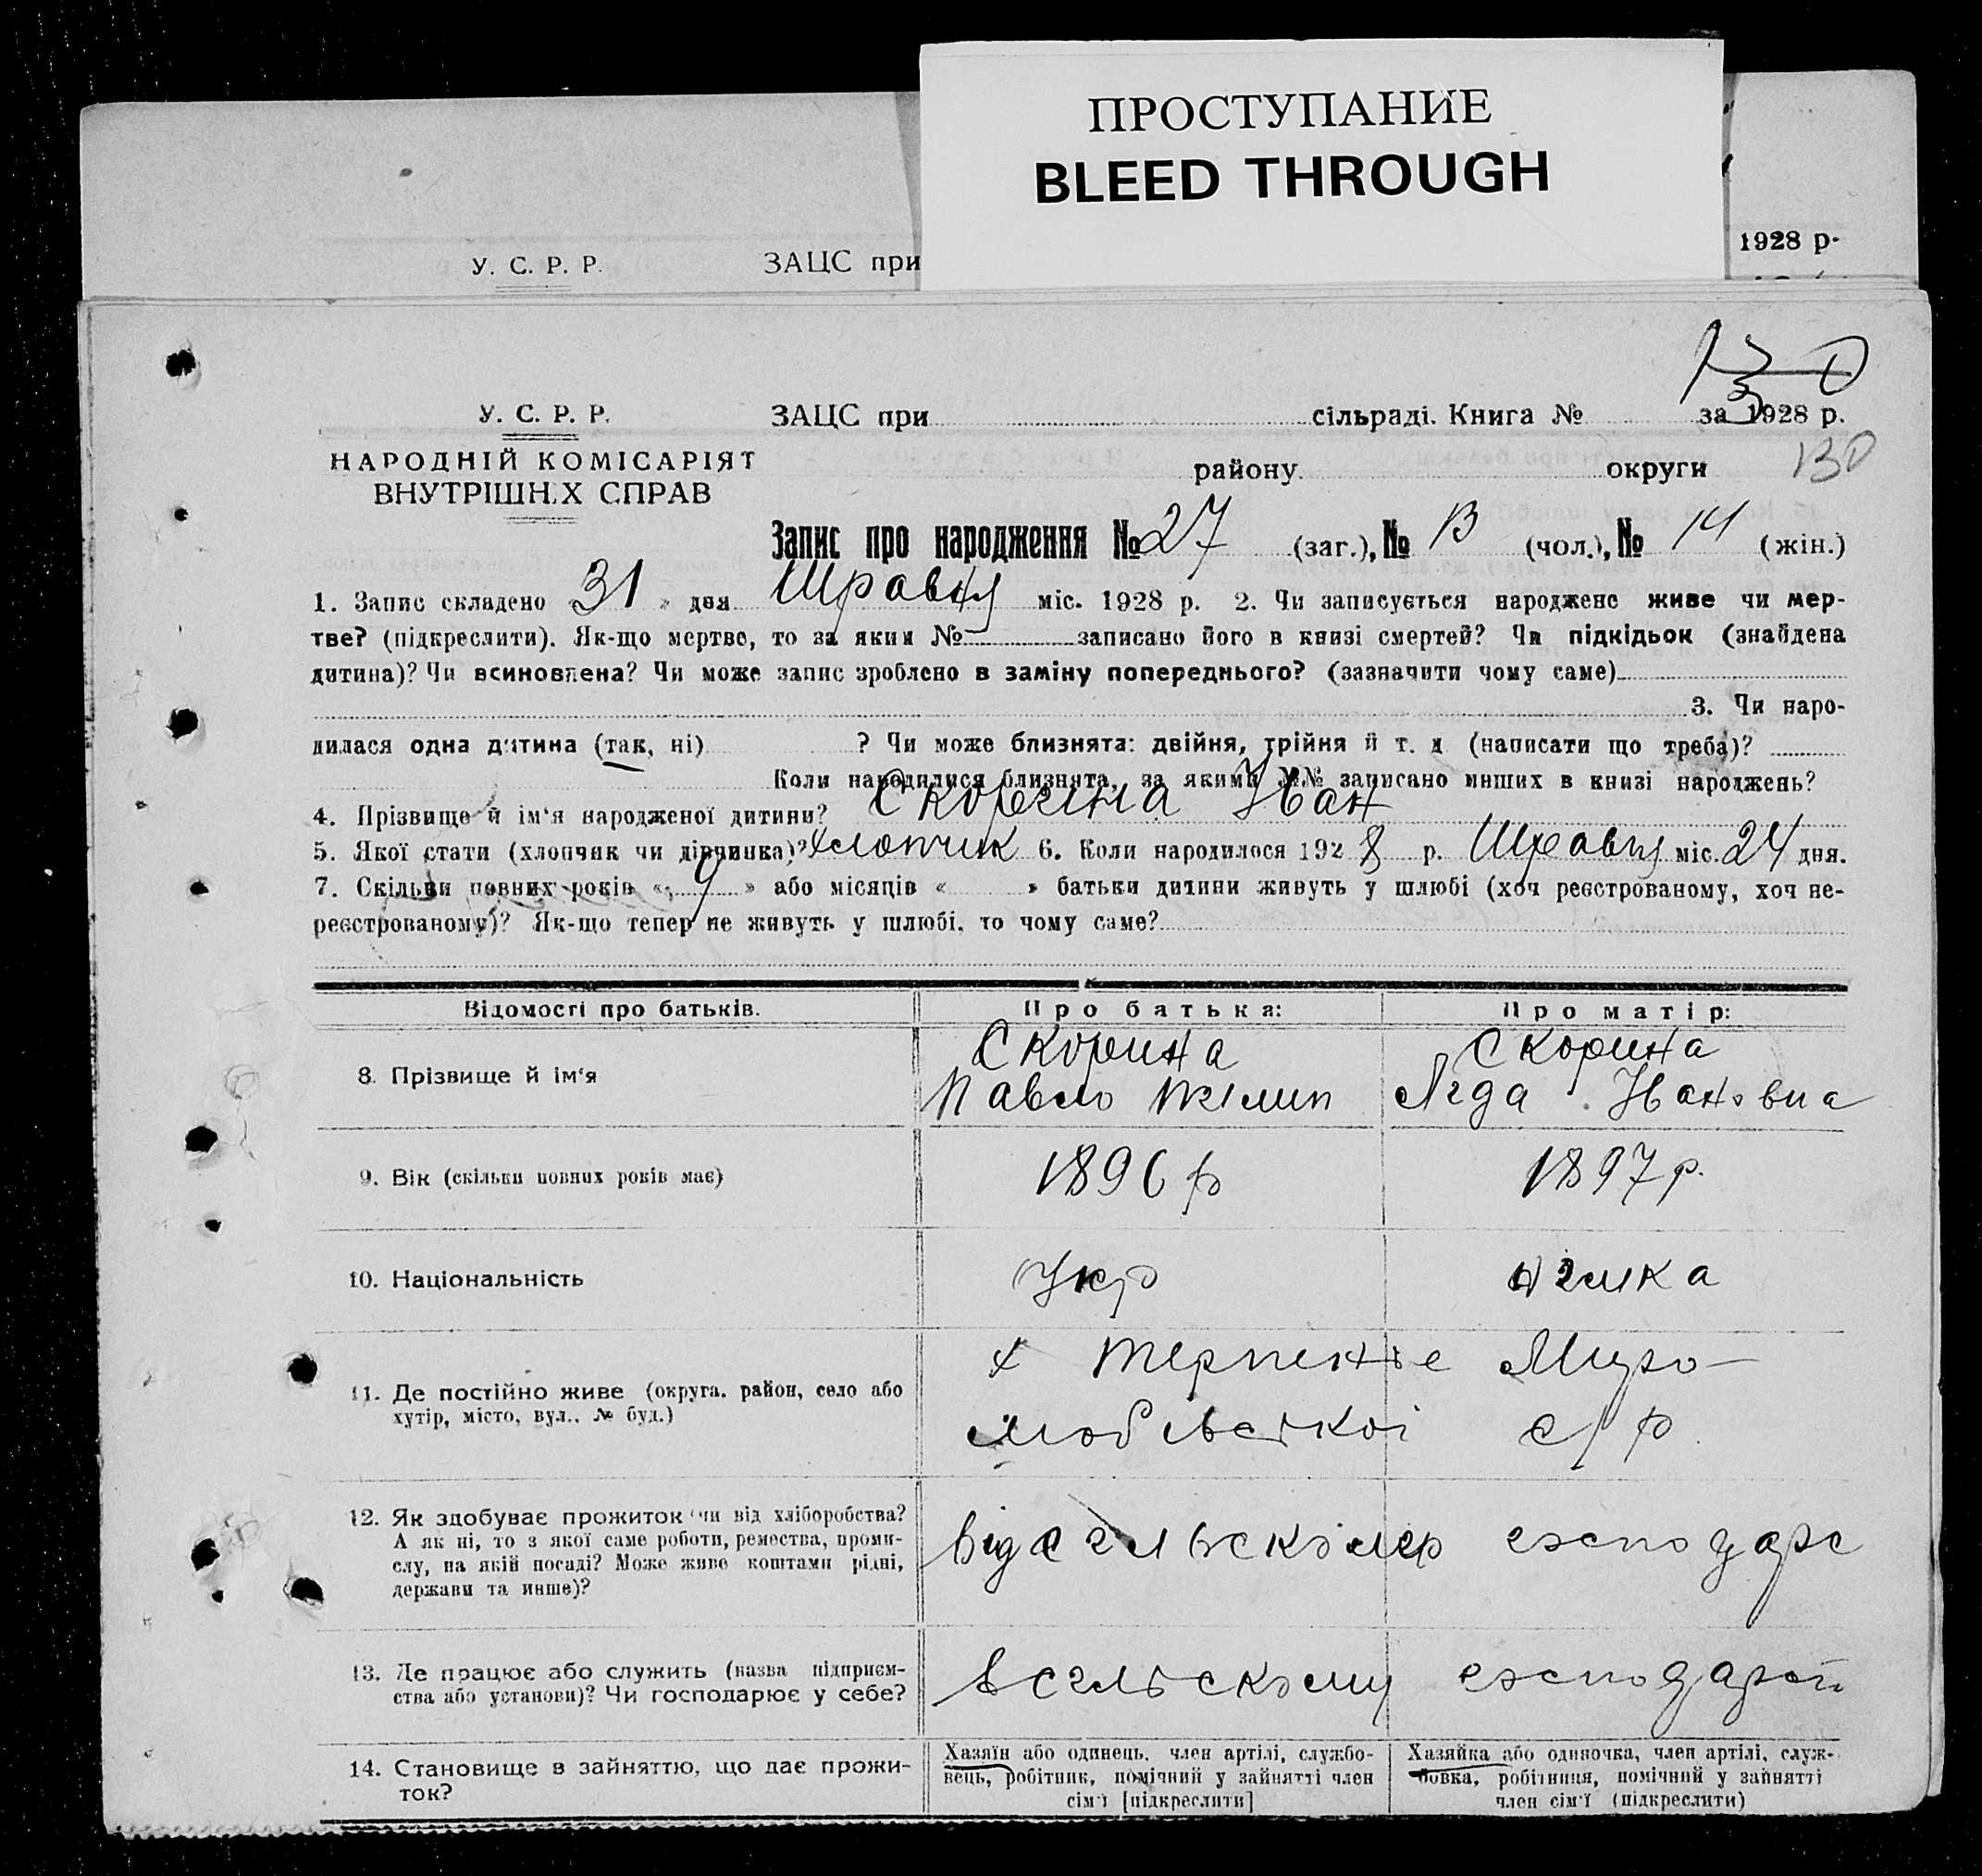 ПРОСТУПАНИЕ
BLEED THROUGH
У. С. Р. Р. ЗАЦС при 1928 р.
130
У. С. Р. Р. ЗАЦС при сільраді. Книга № за 1928 р.
НАРОДНІЙ КОМІСАРІЯТ району округи 130
ВНУТРІШНІХ СПРАВ
Запис про народження № 27 (заг.), № 13 (чол.), № 14 (жін.)
1. Запис складено 31 » дня Травня міс. 1928 р. 2. Чи записується народжене живе чи мер-
тве? (підкреслити). Як-що мертве, то за яким № записано його в книзі смертей? Чи підкідьок (знайдена
дитина)? Чи всиновлена? Чи може запис зроблено в заміну попереднього? (зазначити чому саме)
3. Чи наро-
дилася одна дитина (так, ні) ? Чи може близнята: двійня, трійня й т. д. (написати що треба)?
Коли народилися близнята, за якими №№ записано инших в книзі народжень?
4. Прізвище й ім'я народженої дитини? Скорина Іван
5. Якої стати (хлопчик чи дівчинка)? Хлопчик 6. Коли народилося 1928 р. Травня міс. 24 дня.
7. Скільки повних років « » або місяців « » батьки дитини живуть у шлюбі (хоч реєстрованому, хоч не-
реєстрованому)? Як-що тепер не живуть у шлюбі, то чому саме?
Відомості про батьків. Про батька: Про матір:
8. Прізвище й ім'я
Скорина
Павло Пилип
Скорина
Івановна
9. Вік (скільки повних років має) 1896 р 1897 р.
10. Національність Укр
11. Де постійно живе (округа, район, село або
хутір, місто, вул., № буд.)
х Терпеніе Миро-
любівської с/р
12. Як здобуває прожиток чи від хліборобства?
А як ні, то з якої саме роботи, ремества, проми-
слу, на якій посаді? Може живе коштами рідні,
держави та инше)?
від сельского господарс
13. Де працює або служить (назва підприєм-
ства або установи)? Чи господарює у себе?
в сельскому господарст
14. Становище в зайняттю, що дає прожи-
ток?
Хазяїн або одинець, член артілі, службо-
вець, робітник, помічний у зайнятті член
сім'ї [підкреслити]
Хазяйка або одиночка, член артілі, служ-
бовка, робітниця, помічний у зайнятті
член сім'ї (підкреслити)